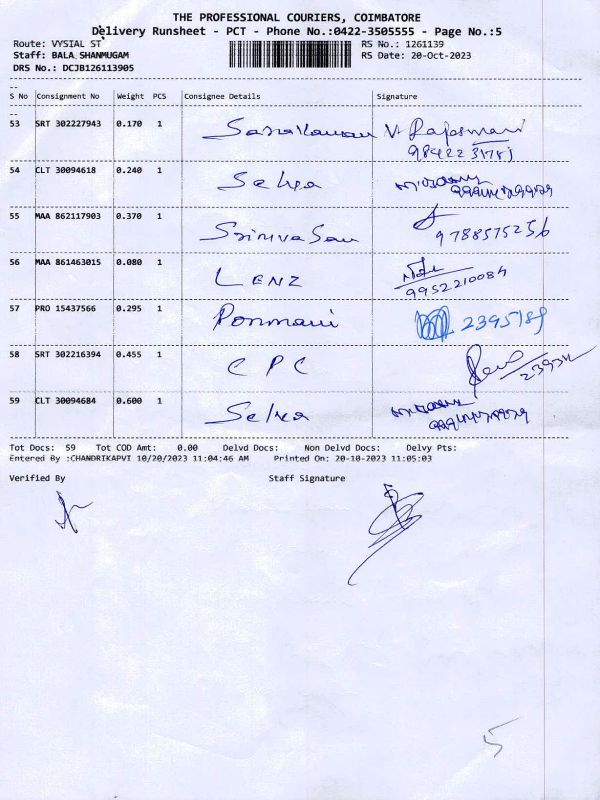 THE PROFESSIONAL COURIERS, COIMBATORE
Delivery Runsheet - PCT - Phone No.:0422-3505555 - Page No.:5
Route: VYSIAL ST RS No.: 1261139
Staff: BALA SHANMUGAM RS Date: 20-Oct-2023
DRS No.: DCJB126113905
--
S No Consignment No Weight PCS Consignee Details Signature
--
53 SRT 302227943 0.170 1
54 CLT 30094618 0.240 1 Selva
55 MAA 862117903 0.370 1 Srinivasan
9788575256
56 MAA 861463015 0.080 1 LENZ
9952210084
57 PRO 15437566 0.295 1 Ponmani
58 SRT 302216394 0.455 1 CPC
59 CLT 30094684 0.600 1 Selva
Tot Docs: 59 Tot COD Amt: 0.00 Delvd Docs: Non Delvd Docs: Delvy Pts:
Entered By :CHANDRIKAPVI 10/20/2023 11:04:46 AM Printed On: 20-10-2023 11:05:03
Verified By Staff Signature
5